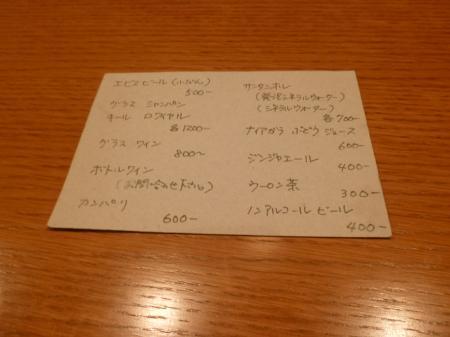 エビスビール(小びん)
500−
グラス シャンパン
キール ロワイヤル
各1200−
グラス ワイン
800〜
ボトルワイン
(お問い合わせ下さい)
カンパリ
600−
サンタニオレ
(発泡ミネラルウォーター)
(ミネラルウォーター)
各700−
ナイアガラ ぶどう ジュース
600−
ジンジャエール
400−
ウーロン茶
300−
ノンアルコール ビール
400−